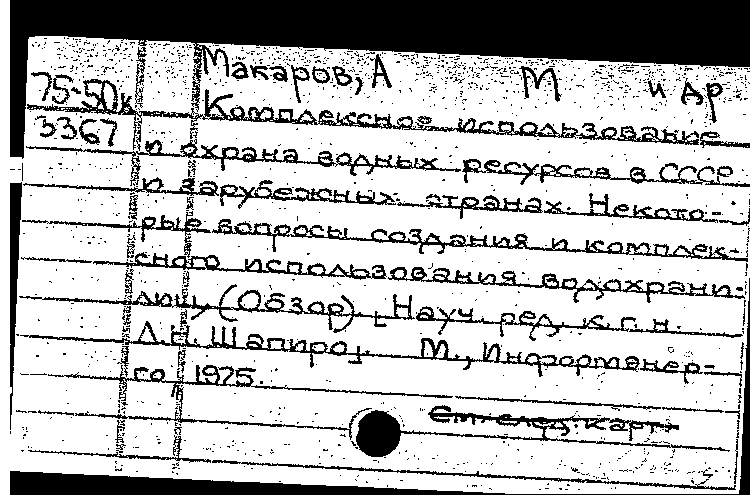 Макаров, А М и др
75-50к
Комплексное использование
3367
и охрана водных ресурсов в СССР
и зарубежных странах. Некото-
рые вопросы создания и комплек-
сного использования водохрани-
лищ (Обзор). [Науч. ред. к.г.н.
Л.Н. Шапиро]. М., Информэнер-
го, 1975.
См. след. карт.